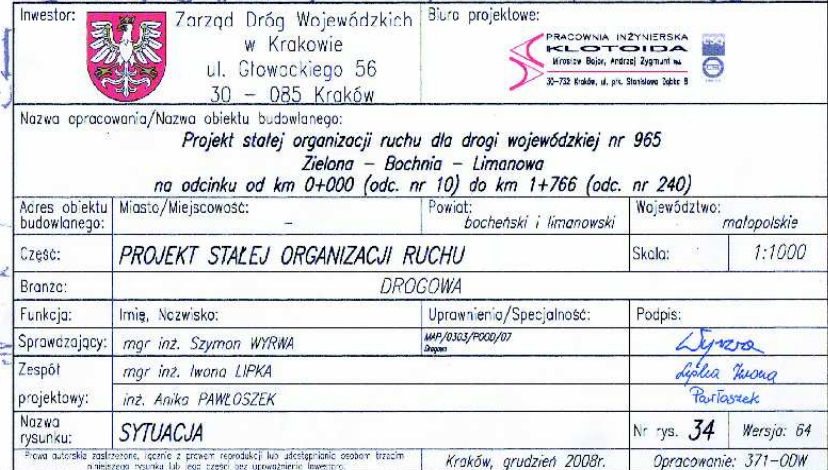 Inwestor:
Zarząd Dróg Wojewódzkich
w Krakowie
ul. Głowackiego 56
30 – 085 Kraków
Biuro projektowe:
PRACOWNIA INŻYNIERSKA
KLOTOIDA
Mirosław Bajor, Andrzej Zygmunt
30-732 Kraków, ul. płk. Stanisława Dąbka 8
Nazwa opracowania/Nazwa obiektu budowlanego:
Projekt stałej organizacji ruchu dla drogi wojewódzkiej nr 965
Zielona – Bochnia – Limanowa
na odcinku od km 0+000 (odc. nr 10) do km 1+766 (odc. nr 240)
Adres obiektu budowlanego: Miasto/Miejscowość: – Powiat: bocheński i limanowski Województwo: małopolskie
Część: PROJEKT STAŁEJ ORGANIZACJI RUCHU Skala: 1:1000
Branża: DROGOWA
Funkcja: Imię, Nazwisko: Uprawnienia/Specjalność: Podpis:
Sprawdzający: mgr inż. Szymon WYRWA MAP/0303/POOD/07 Drogowa Wyrwa
Zespół mgr inż. Iwona LIPKA Lipka Iwona
projektowy: inż. Anika PAWŁOSZEK Pawłoszek
Nazwa rysunku: SYTUACJA Nr rys. 34 Wersja: 64
Prawa autorskie zastrzeżone, łącznie z prawem reprodukcji lub udostępniania osobom trzecim
niniejszego rysunku lub jego części bez upoważnienia Inwestora.
Kraków, grudzień 2008r. Opracowanie: 371-ODW